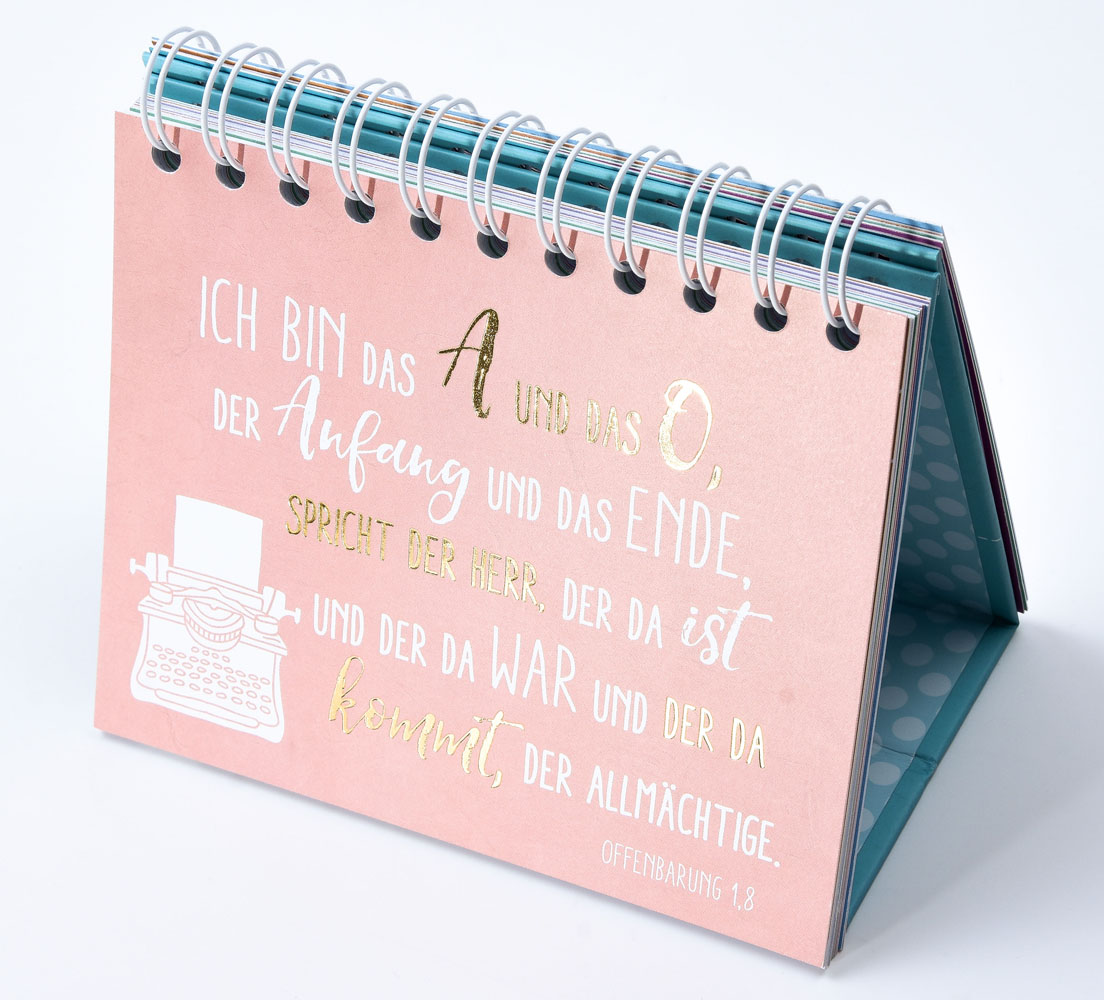 ICH BIN DAS A UND DAS O,
DER Anfang UND DAS ENDE,
SPRICHT DER HERR, DER DA ist
UND DER DA WAR UND DER DA
kommt, DER ALLMÄCHTIGE.
OFFENBARUNG 1,8